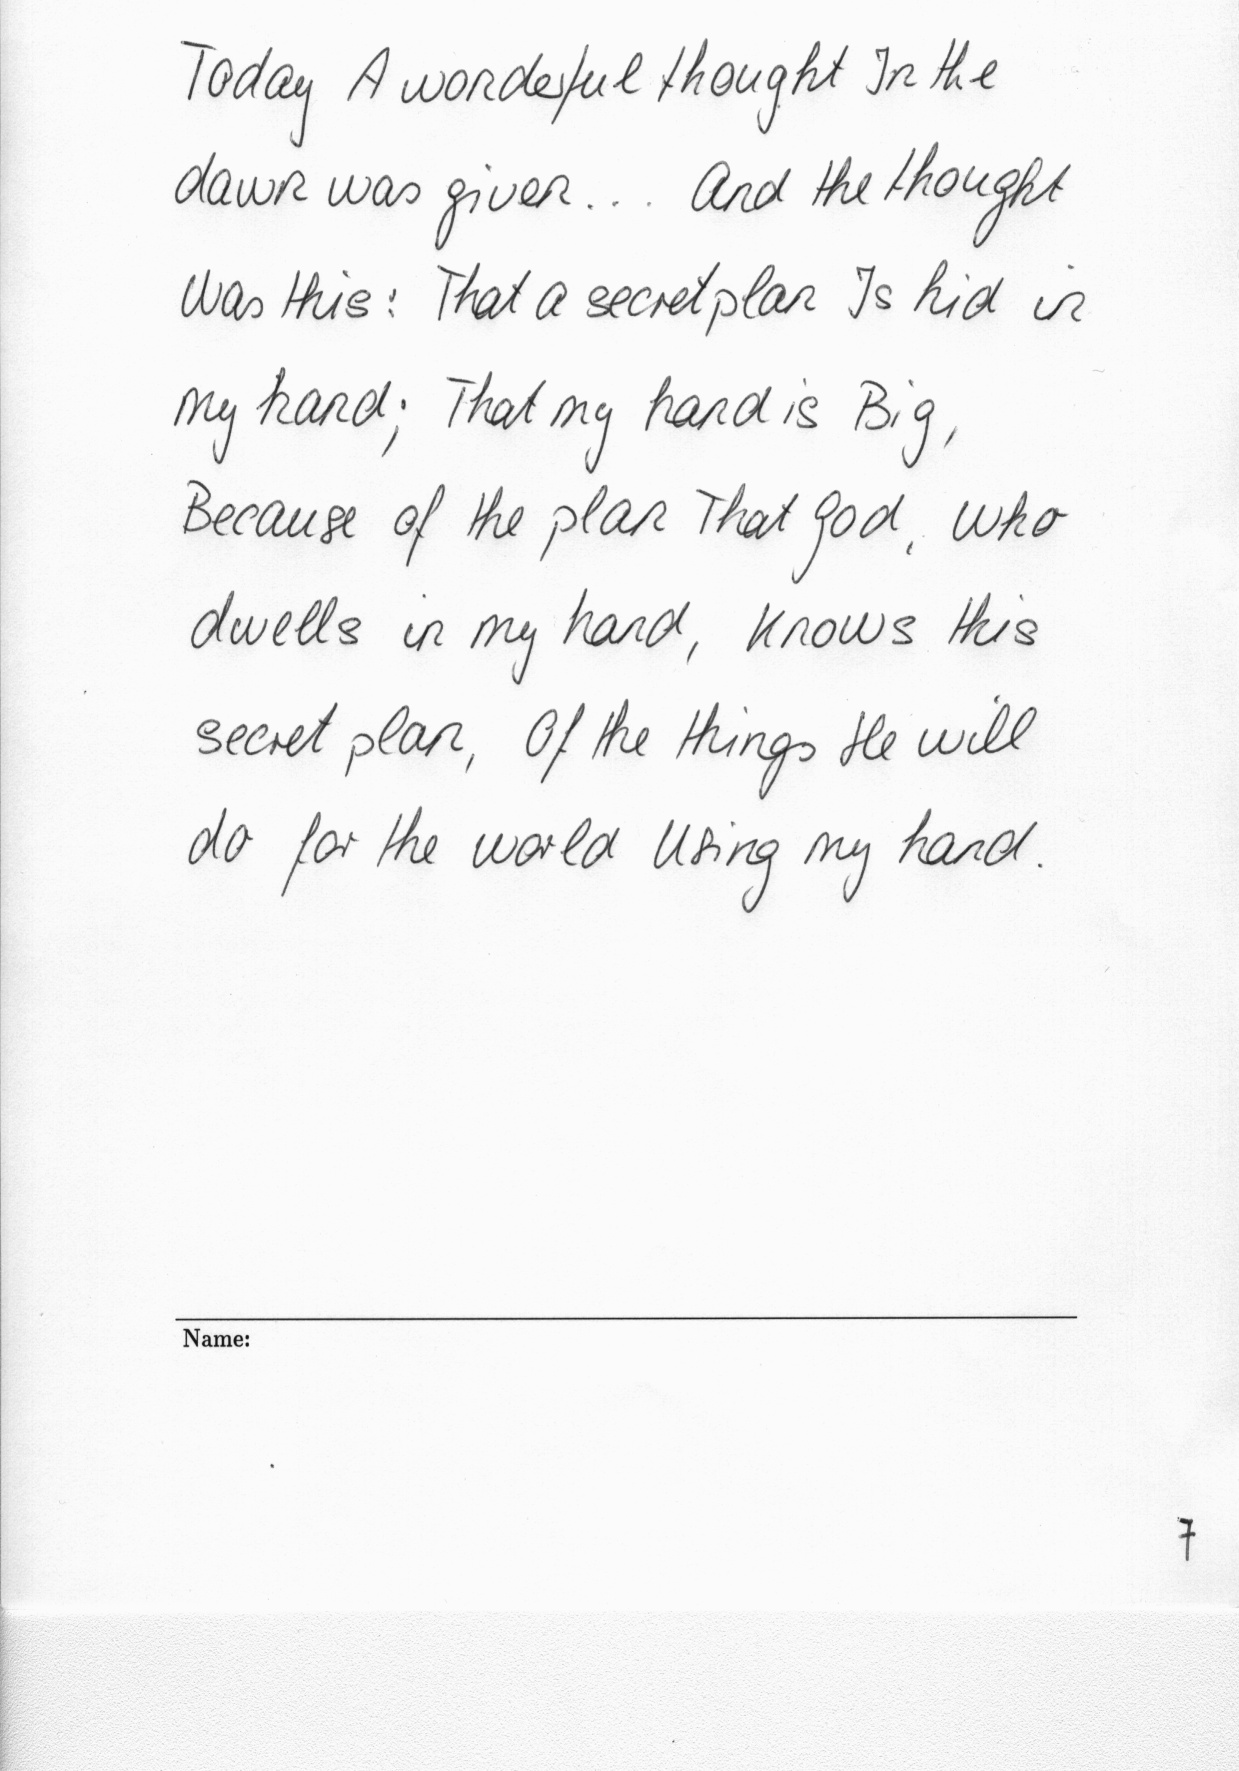 Today A wonderful thought In the
dawn was given... And the thought
Was this: That a secret plan Is hid in
my hand; That my hand is Big,
Because of the plan That God, Who
dwells in my hand, Knows this
secret plan, Of the things He will
do for the world Using my hand.
Name:
7